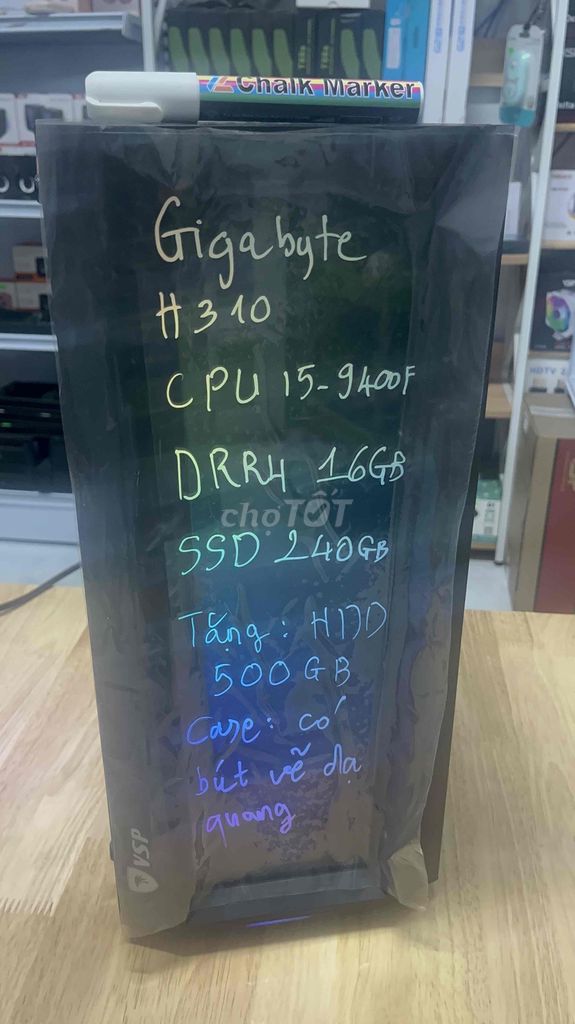 Chalk Marker
Gigabyte
H310
CPU i5-9400F
DRR4 16GB
chợTỐT
SSD 240GB
Tặng: HDD
500GB
Case: có
bút vẽ dạ
quang
VSP
HDTV